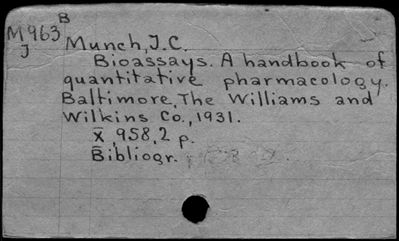 B
M963 Munch, J.C.
J
Bioassays. A handbook of
quantitative pharmacology.
Baltimore, The Williams and
Wilkins Co., 1931.
x̅, 958, 2 p.
Bibliogr.